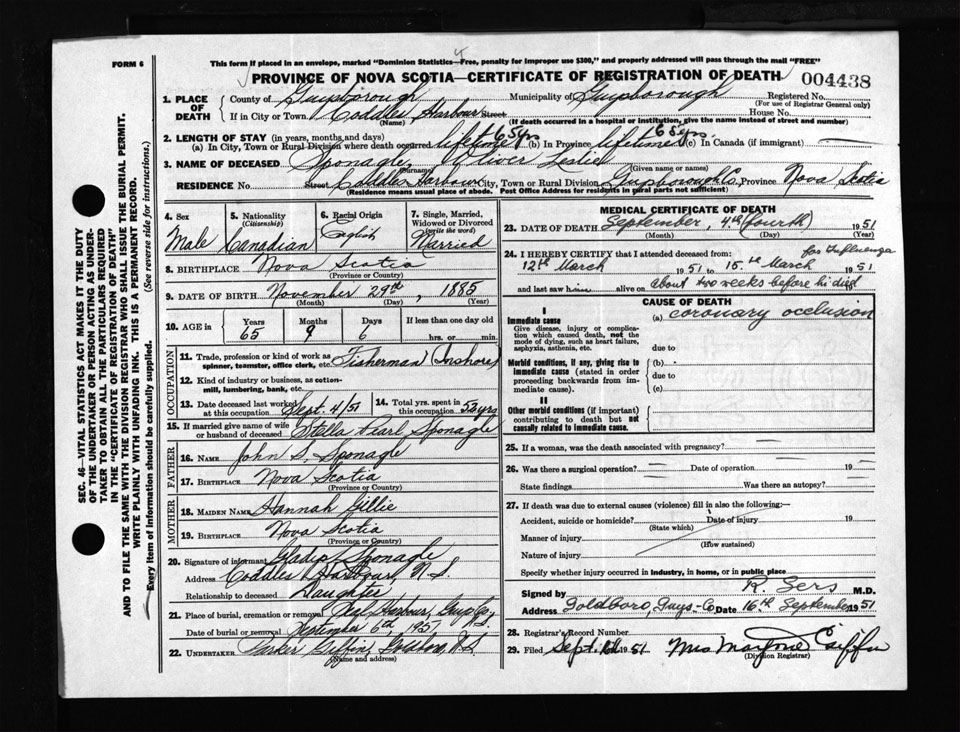 FORM 6
This form if placed in an envelope, marked "Dominion Statistics—Free, penalty for improper use $300," and properly addressed will pass through the mail "FREE"
PROVINCE OF NOVA SCOTIA—CERTIFICATE OF REGISTRATION OF DEATH
004438
1. PLACE OF DEATH
County of Guysborough Municipality of Guysborough Registered No.
(For use of Registrar General only)
If in City or Town Coddles Harbour Street House No.
(Name) (If death occurred in a hospital or institution, give the name instead of street and number)
2. LENGTH OF STAY (in years, months, and days)
(a) In City, Town or Rural Division where death occurred lifetime 65 yrs (b) In Province lifetime 65 yrs. (c) In Canada (if immigrant) —
3. NAME OF DECEASED Sponagle, Oliver Leslie
(Surname) (Given name or names)
RESIDENCE No. Street Coddles Harbour City, Town or Rural Division Guysborough Co. Province Nova Scotia
(Residence means usual place of abode. Post Office Address for residents in rural parts not sufficient)
4. Sex Male
5. Nationality (Citizenship) Canadian
6. Racial Origin English
7. Single, Married, Widowed or Divorced (write the word) Married
8. BIRTHPLACE Nova Scotia
(Province or Country)
9. DATE OF BIRTH November 29th, 1885
(Month) (Day) (Year)
10. AGE in Years 65 Months 9 Days 6 If less than one day old hrs. or min.
OCCUPATION
11. Trade, profession or kind of work as spinner, teamster, office clerk, etc. Fisherman (Inshore)
12. Kind of industry or business, as cotton-mill, lumbering, bank, etc.
13. Date deceased last worked at this occupation Sept. 4/51
14. Total yrs. spent in this occupation 50 yrs
15. If married give name of wife or husband of deceased Stella Pearl Sponagle
FATHER
16. NAME John S. Sponagle
17. BIRTHPLACE Nova Scotia
(Province or Country)
MOTHER
18. MAIDEN NAME Hannah Gillie
19. BIRTHPLACE Nova Scotia
(Province or Country)
20. Signature of informant Gladys Sponagle
Address Coddles Harbour, N.S.
Relationship to deceased Daughter
21. Place of burial, cremation or removal Harbour, Guys Co., N.S.
Date of burial or removal September 6th, 1951
22. UNDERTAKER Parker Giffin, Goldboro, N.S.
(Name and address)
MEDICAL CERTIFICATE OF DEATH
23. DATE OF DEATH September, 4th (fourth) 1951
(Month) (Day) (Year)
24. I HEREBY CERTIFY that I attended deceased from: for Influenza
12th March 1951 to 15th March 1951
and last saw him alive on about two weeks before he died 19
CAUSE OF DEATH
I
Immediate cause
Give disease, injury or complication which caused death, not the mode of dying, such as heart failure, asphyxia, asthenia, etc.
(a) coronary occlusion
due to
Morbid conditions, if any, giving rise to immediate cause (stated in order proceeding backwards from immediate cause).
(b)
due to
(c)
II
Other morbid conditions (if important) contributing to death but not causally related to immediate cause.
25. If a woman, was the death associated with pregnancy? —
26. Was there a surgical operation? — Date of operation — 19 —
State findings Was there an autopsy? —
27. If death was due to external causes (violence) fill in also the following:—
Accident, suicide or homicide? Date of injury 19
(State which)
Manner of injury
(How sustained)
Nature of injury
Specify whether injury occurred in industry, in home, or in public place
Signed by R Sers M.D.
Address Goldboro, Guys-Co Date 16th September 1951
28. Registrar's Record Number
29. Filed Sept. 1951 Mrs Marjorie Giffin
(Division Registrar)
SEC. 46—VITAL STATISTICS ACT MAKES IT THE DUTY
OF THE UNDERTAKER OR PERSON ACTING AS UNDER-
TAKER TO OBTAIN ALL THE PARTICULARS REQUIRED
IN THE "CERTIFICATE OF REGISTRATION OF DEATH"
AND TO FILE THE SAME WITH THE DIVISION REGISTRAR WHO SHALL ISSUE THE BURIAL PERMIT.
WRITE PLAINLY WITH UNFADING INK. THIS IS A PERMANENT RECORD.
Every item of information should be carefully supplied. (See reverse side for instructions.)